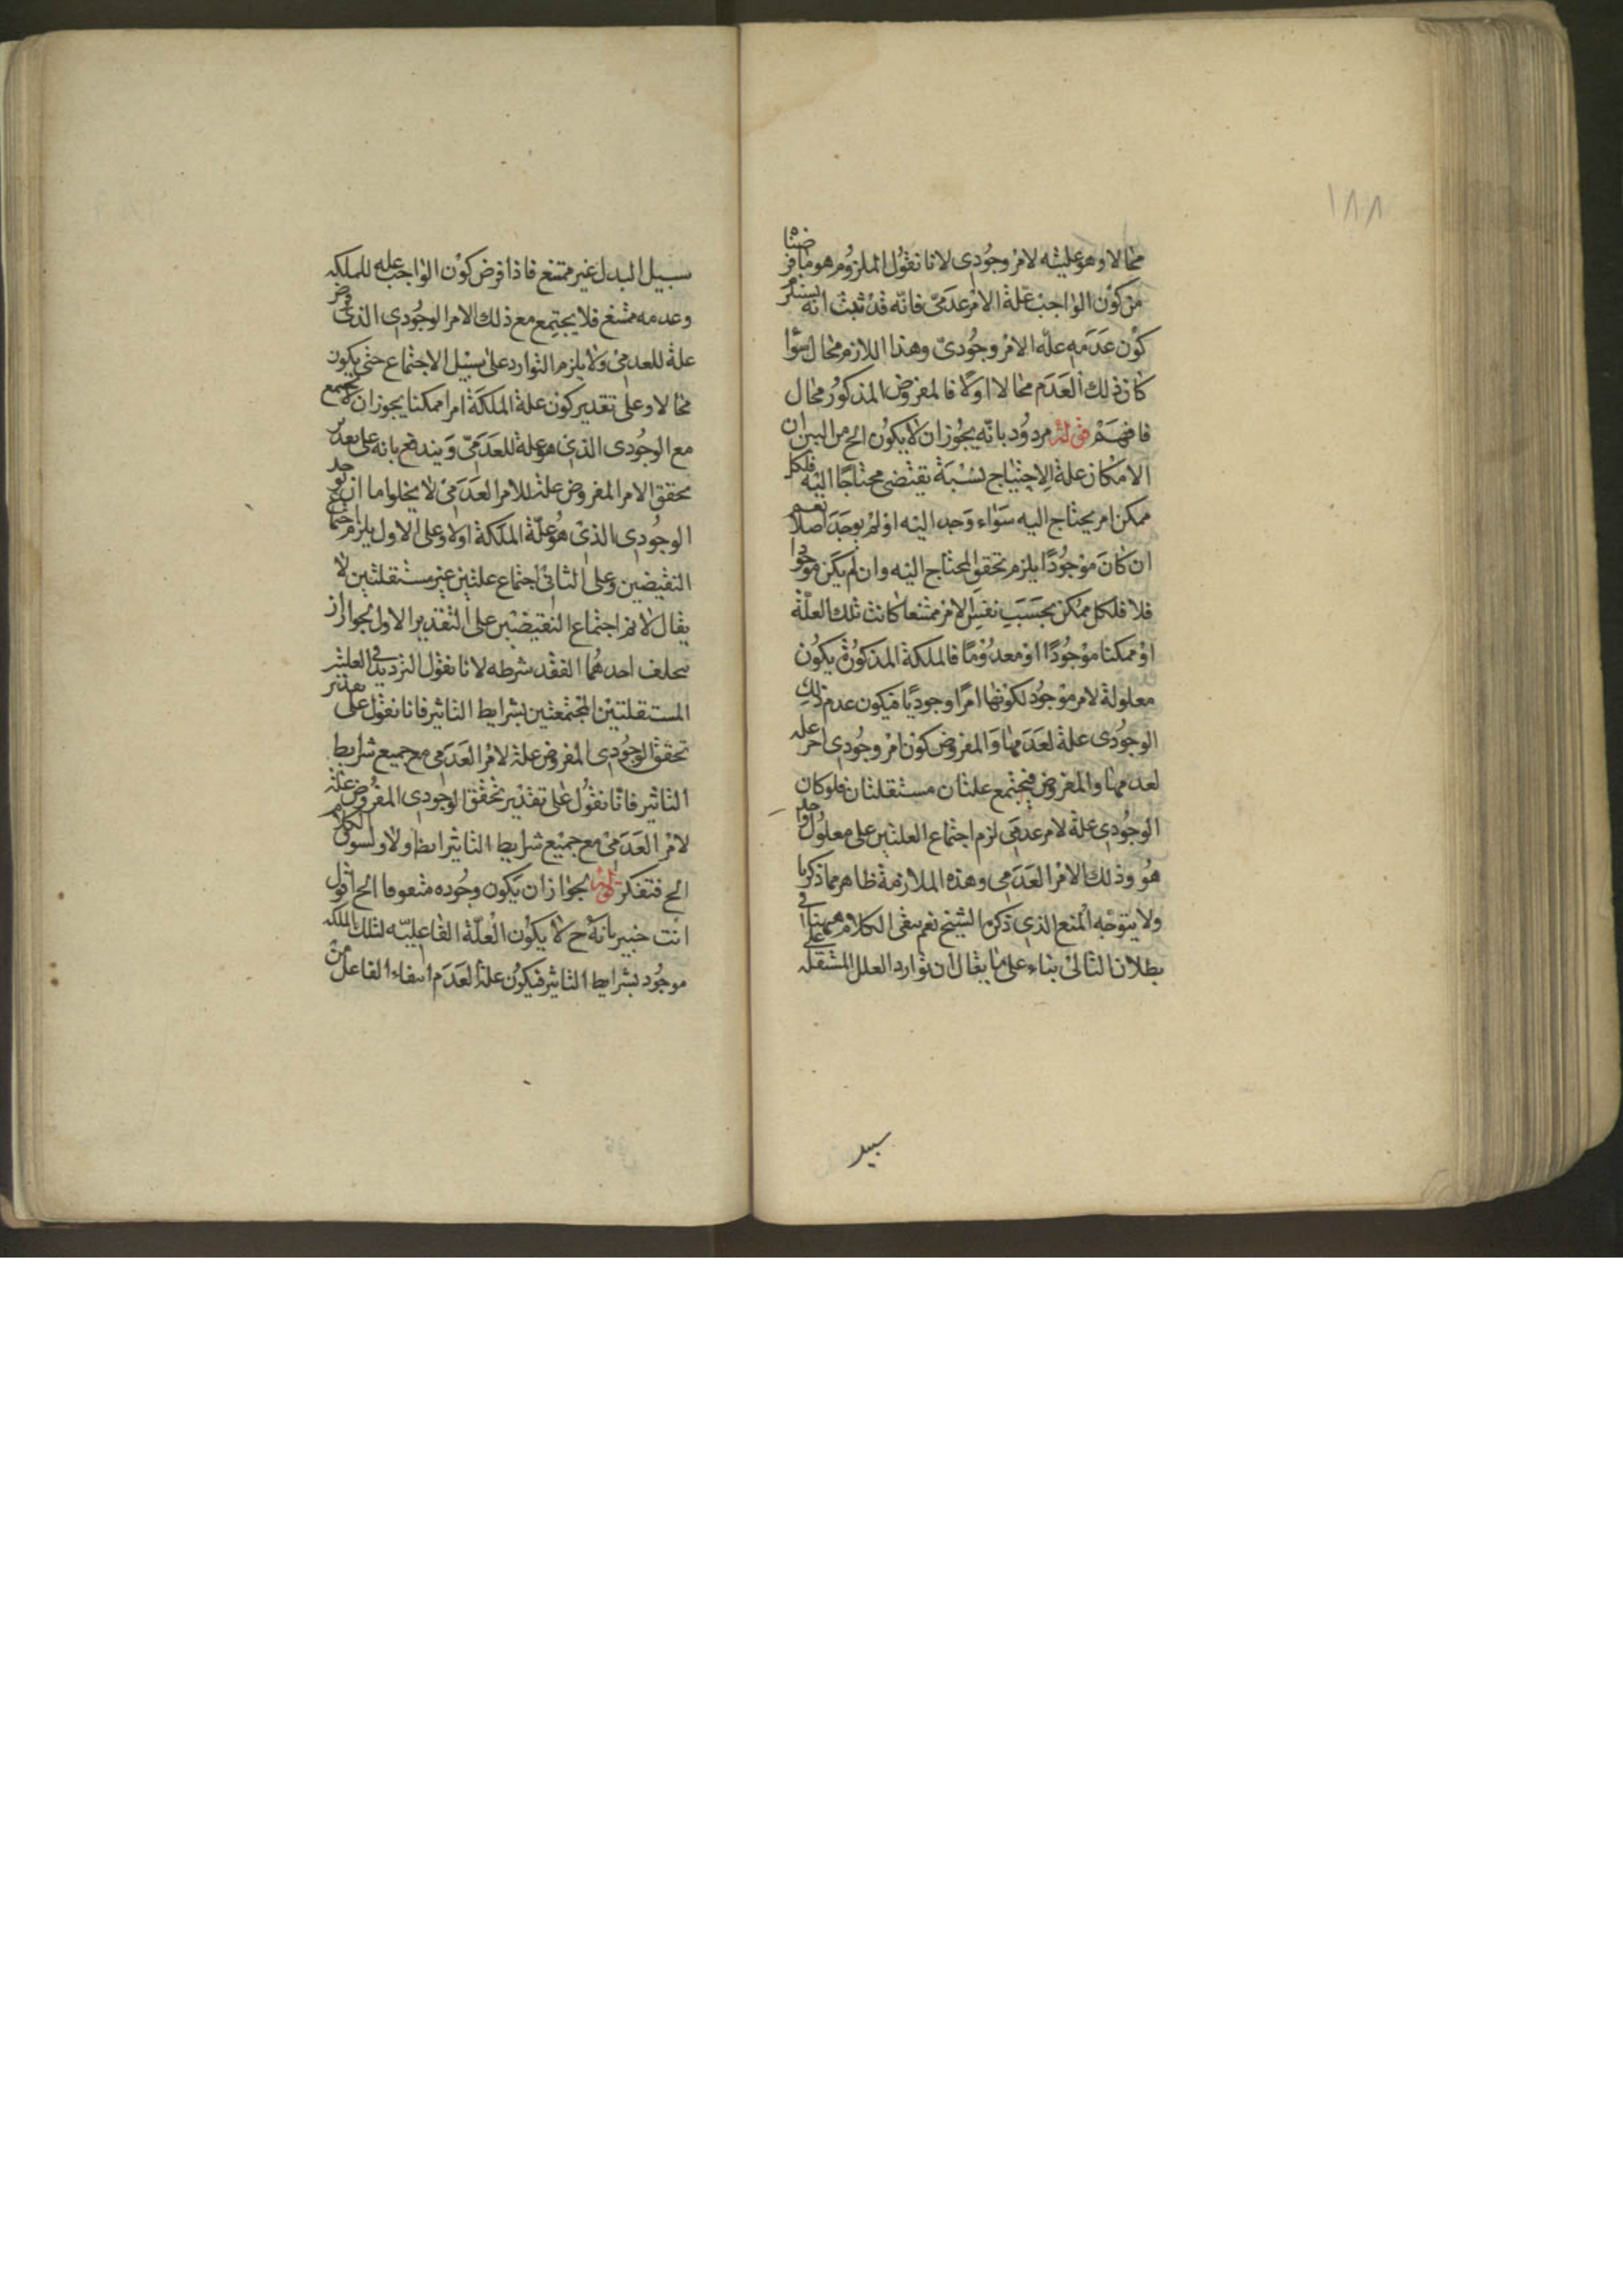 ١٨٨
محالا وهو علیته لامر وجودی لانا نقول الملزوم هو ما فرضنا
من کون الواجب علة الامر عدمی فانه قد ثبت انه یستلزم
کون عدمه علة الامر وجودی وهذا اللازم محال سواء
کان ذلك العدم محالا اولا فالمفروض المذکور محال
فافهم قوله مردود بانه یجوز ان لا یکون الخ من البین ان
الامکان علة الاحتیاج نسبة یقتضی محتاجا الیه فلکل
ممکن امر یحتاج الیه سواء وجد الیه او لم یوجد اصلا نعم
ان کان موجودا یلزم تحقق المحتاج الیه وان لم یکن موجودا
فلا فلکل ممکن بحسب نفس الامر ممتنعا کانت تلك العلة
او ممکنا موجودا او معدوما فالملکة المذکورة یکون
معلولة لامر موجود لکونها امرا وجودیا فیکون عدم ذلك
الوجودی علة لعدمها والمفروض کون امر وجودی اخر علة
لعدمها والمفروض فیجتمع علتان مستقلتان فلو کان
الوجودی علة لامر عدمی لزم اجتماع العلتین علی معلول واحد
هو وذلك الامر العدمی وهذه الملازمة ظاهر مما ذکرنا
ولا یتوجه المنع الذی ذکره الشیخ نعم یبقی الکلام ههنا فی
بطلان التالی بناء علی ما یقال ان توارد العلل المستقلة علی
سبیل
سبیل البدل غیر ممتنع فاذا فرض کون الواجب علة للملکة
وعدمه ممتنع فلا یجتمع مع ذلك الامر الوجودی الذی فرض
علة للعدمی ولا یلزم التوارد علی سبیل الاجتماع حتی یکون
محالا وعلی تقدیر کون علة الملکة امرا ممکنا یجوز ان لا یجتمع
مع الوجودی الذی هو علة للعدمی ویندفع بانه علی تقدیر
تحقق الامر المفروض علة للامر العدمی لا یخلو اما ان یوجد
الوجودی الذی هو علة الملکة اولا وعلی الاول یلزم اجتماع
النقیضین وعلی الثانی اجتماع علتین غیر مستقلتین لا
یقال لانم اجتماع النقیضین علی التقدیر الاول لجواز ان
یتخلف احدهما لفقد شرطه لانا نقول التردید فی العلتین
المستقلتین المجتمعتین بشرایط التاثیر فانا نقول علی تقدیر
تحقق الوجودی المفروض علة لامر العدمی مع جمیع شرایط
التاثیر فانا نقول علی تقدیر تحقق الوجودی المفروض علة
لامر العدمی مع جمیع شرایط التاثیر اما اولا الکلام
الخ فتفکر قوله لجواز ان یکون وجوده متعوقا الخ اقول
انت خبیر بانه ح لا یکون العلة الفاعلیة لتلك الملکة
موجود بشرایط التاثیر فیکون علة العدم انتفاء الفاعل من